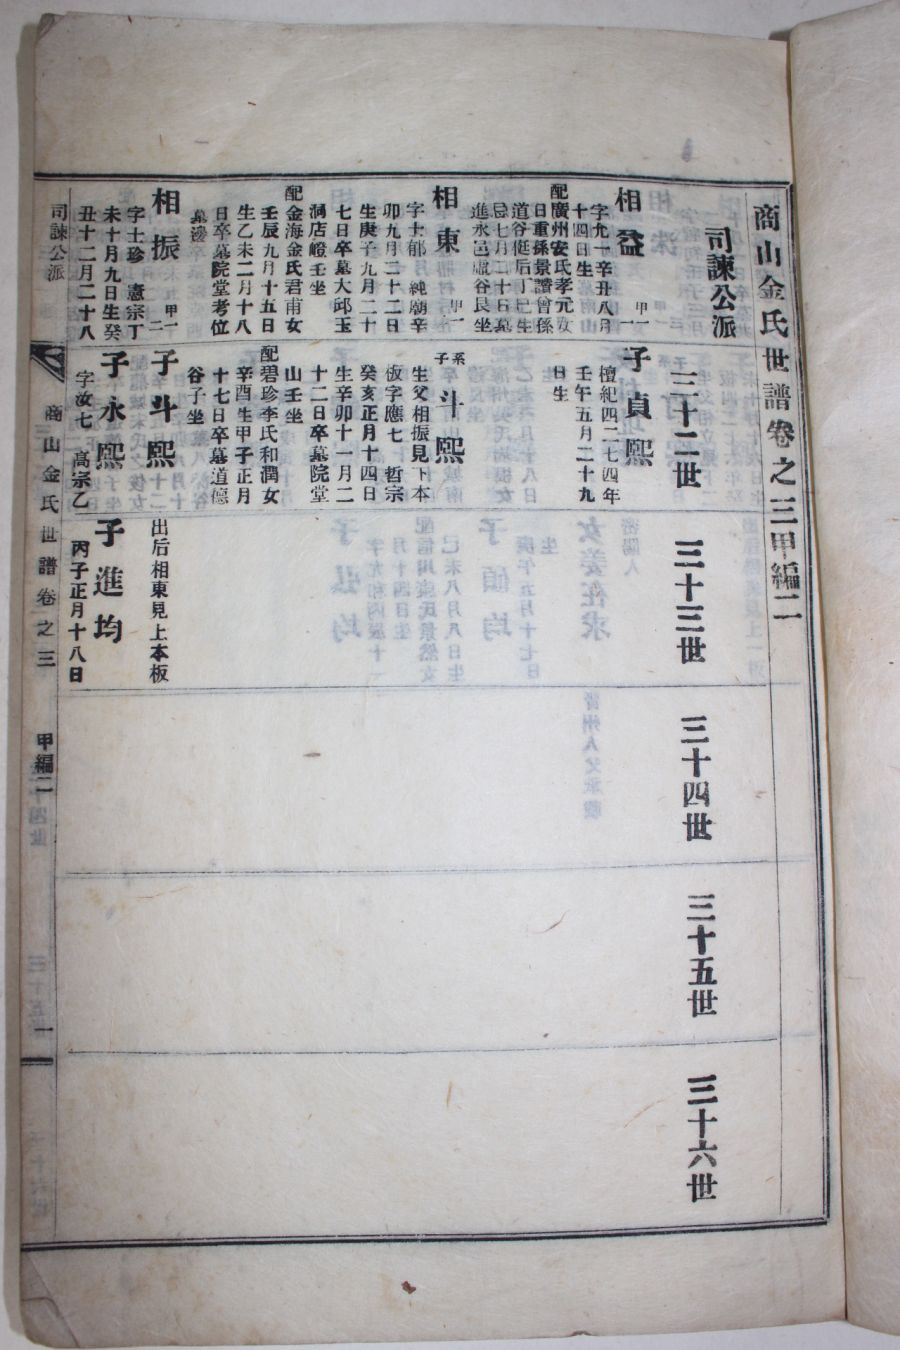 商山金氏世譜卷之三甲編二
司諫公派
三十二世
三十三世
三十四世
三十五世
三十六世
相益 甲一一
字允一辛丑八月
十四日生
配廣州安氏孝元女
日重孫景讚曾孫
道谷挺后丁巳生
忌七月二十日墓
進永邑虛谷艮坐
相東 甲一
字士郁 純廟辛
卯九月二十二日
生庚子九月二十
七日卒墓大邱玉
洞店嶝壬坐
配金海金氏君甫女
壬辰九月十五日
生乙未二月十八
日卒墓院堂考位
墓邊
相振 甲一二
字士珍 憲宗丁
未十月九日生癸
丑十二月二十八
子貞熙
檀紀四二七四年
壬午五月二十九
日生
系子斗熙
生父相振見下本
板字應七 哲宗
癸亥正月十四日
生辛卯十一月二
十二日卒墓院堂
山壬坐
配碧珍李氏和潤女
辛酉生甲子正月
十七日卒墓道德
谷子坐
子斗熙
出后相東見上本板
子永熙
字汝七 高宗乙
子進均
丙子正月十八日
司諫公派
商山金氏世譜卷之三
甲編二
一